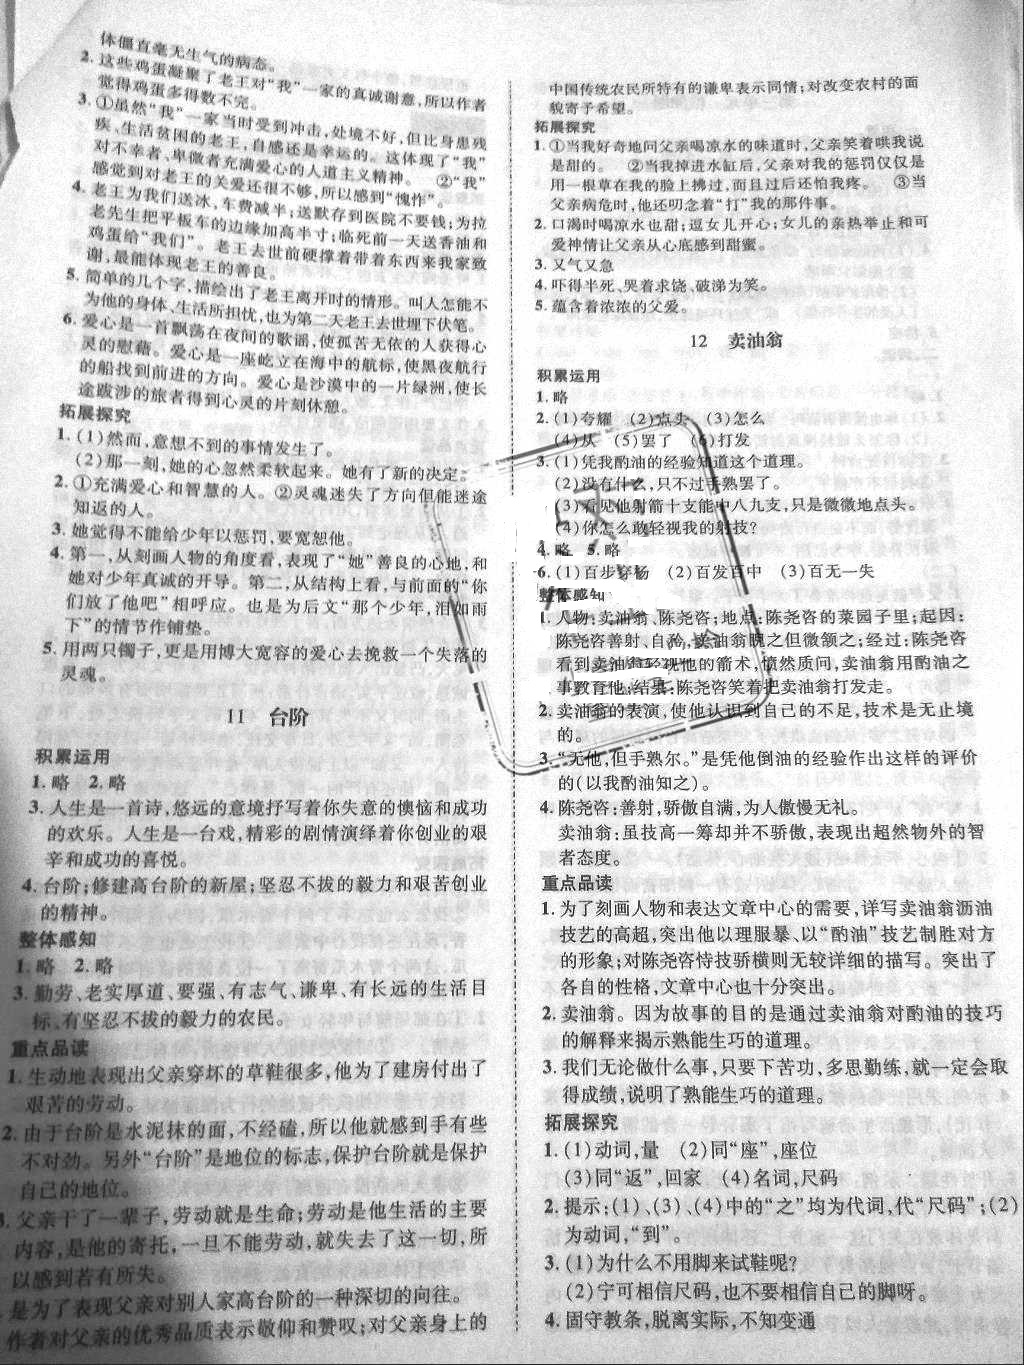 体僵直毫无生气的病态。
2. 这些鸡蛋凝聚了老王对“我”一家的真诚谢意,所以作者
觉得鸡蛋多得数不完。
3. ①虽然“我”一家当时受到冲击,处境不好,但比身患残
疾、生活贫困的老王,自感还是幸运的。这体现了“我”
对不幸者、卑微者充满爱心的人道主义精神。 ②“我”
感觉到对老王的关爱还很不够,所以感到“愧怍”。
4. 老王为我们送冰,车费减半;送默存到医院不要钱;为拉
老先生把平板车的边缘加高半寸;临死前一天送香油和
鸡蛋给“我们”。老王去世前硬撑着带着东西来我家致
谢,最能体现老王的善良。
5. 简单的几个字,描绘出了老王离开时的情形。叫人怎能不
为他的身体、生活所担忧,也为第二天老王去世埋下伏笔。
6. 爱心是一首飘荡在夜间的歌谣,使孤苦无依的人获得心
灵的慰藉。爱心是一座屹立在海中的航标,使黑夜航行
的船找到前进的方向。爱心是沙漠中的一片绿洲,使长
途跋涉的旅者得到心灵的片刻休憩。
拓展探究
1. (1)然而,意想不到的事情发生了。
(2)那一刻,她的心忽然柔软起来。她有了新的决定。
2. ①充满爱心和智慧的人。②灵魂迷失了方向但能迷途
知返的人。
3. 她觉得不能给少年以惩罚,要宽恕他。
4. 第一,从刻画人物的角度看,表现了“她”善良的心地,和
她对少年真诚的开导。第二,从结构上看,与前面的“你
们放了他吧”相呼应。也是为后文“那个少年,泪如雨
下”的情节作铺垫。
5. 用两只镯子,更是用博大宽容的爱心去挽救一个失落的
灵魂。
11 台阶
积累运用
1. 略 2. 略
3. 人生是一首诗,悠远的意境抒写着你失意的懊恼和成功
的欢乐。人生是一台戏,精彩的剧情演绎着你创业的艰
辛和成功的喜悦。
4. 台阶;修建高台阶的新屋;坚忍不拔的毅力和艰苦创业
的精神。
整体感知
1. 略 2. 略
3. 勤劳、老实厚道、要强、有志气、谦卑、有长远的生活目
标、有坚忍不拔的毅力的农民。
重点品读
1. 生动地表现出父亲穿坏的草鞋很多,他为了建房付出了
艰苦的劳动。
2. 由于台阶是水泥抹的面,不经磕,所以他就感到手有些
不对劲。另外“台阶”是地位的标志,保护台阶就是保护
自己的地位。
父亲干了一辈子,劳动就是生命;劳动是他生活的主要
内容,是他的寄托,一旦不能劳动,就失去了这一切,所
以感到若有所失。
是为了表现父亲对别人家高台阶的一种深切的向往。
作者对父亲的优秀品质表示敬仰和赞叹;对父亲身上的
中国传统农民所特有的谦卑表示同情;对改变农村的面
貌寄予希望。
拓展探究
1. ①当我好奇地问父亲喝凉水的味道时,父亲笑着哄我说
是甜的。 ②当我掉进水缸后,父亲对我的惩罚仅仅是
用一根草在我的脸上拂过,而且还怕我疼。 ③当
父亲病危时,他还叨念着“打”我的那件事。
2. 口渴时喝凉水也甜;逗女儿开心;女儿的亲热举止和可
爱神情让父亲从心底感到甜蜜。
3. 又气又急
4. 吓得半死、哭着求饶、破涕为笑。
5. 蕴含着浓浓的父爱。
12 卖油翁
积累运用
1. 略
2. (1)夸耀 (2)点头 (3)怎么
(4)从 (5)罢了 (6)打发
3. (1)凭我酌油的经验知道这个道理。
(2)没有什么,只不过手熟罢了。
(3)看见他射箭十支能中八九支,只是微微地点头。
(4)你怎么敢轻视我的射技?
4. 略 5. 略
6. (1)百步穿杨 (2)百发百中 (3)百无一失
整体感知
1. 人物:卖油翁、陈尧咨;地点:陈尧咨的菜园子里;起因:
陈尧咨善射、自矜,卖油翁睨之但微颔之;经过:陈尧咨
看到卖油翁轻视他的箭术,愤然质问,卖油翁用酌油之
事教育他;结果:陈尧咨笑着把卖油翁打发走。
2. 卖油翁的表演,使他认识到自己的不足,技术是无止境
的。
3. “无他,但手熟尔。”是凭他倒油的经验作出这样的评价
的(以我酌油知之)。
4. 陈尧咨:善射,骄傲自满,为人傲慢无礼。
卖油翁:虽技高一筹却并不骄傲,表现出超然物外的智
者态度。
重点品读
1. 为了刻画人物和表达文章中心的需要,详写卖油翁沥油
技艺的高超,突出他以理服暴、以“酌油”技艺制胜对方
的形象;对陈尧咨恃技骄横则无较详细的描写。突出了
各自的性格,文章中心也十分突出。
2. 卖油翁。因为故事的目的是通过卖油翁对酌油的技巧
的解释来揭示熟能生巧的道理。
3. 我们无论做什么事,只要下苦功、多思勤练,就一定会取
得成绩,说明了熟能生巧的道理。
拓展探究
1. (1)动词,量 (2)同“座”,座位
(3)同“返”,回家 (4)名词,尺码
2. 提示:(1)、(3)、(4)中的“之”均为代词,代“尺码”;(2)
为动词,“到”。
3. (1)为什么不用脚来试鞋呢?
(2)宁可相信尺码,也不要相信自己的脚呀。
4. 固守教条,脱离实际,不知变通